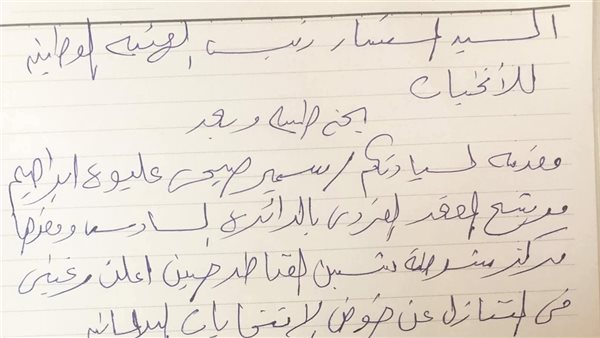 السيد المستشار رئيس الهيئة الوطنية
للأنتخبات
تحية طيبة وبعد
مقدمه لسيادتكم / سمير صبحى عليوه ابراهيم
مرشح المقعد الفردى بالدائرة السادسه ومقرها
مركز شرطة شبين القناطر حيث اعلن رغبتى
فى التنازل عن خوض الإنتخابات البرلمانيه